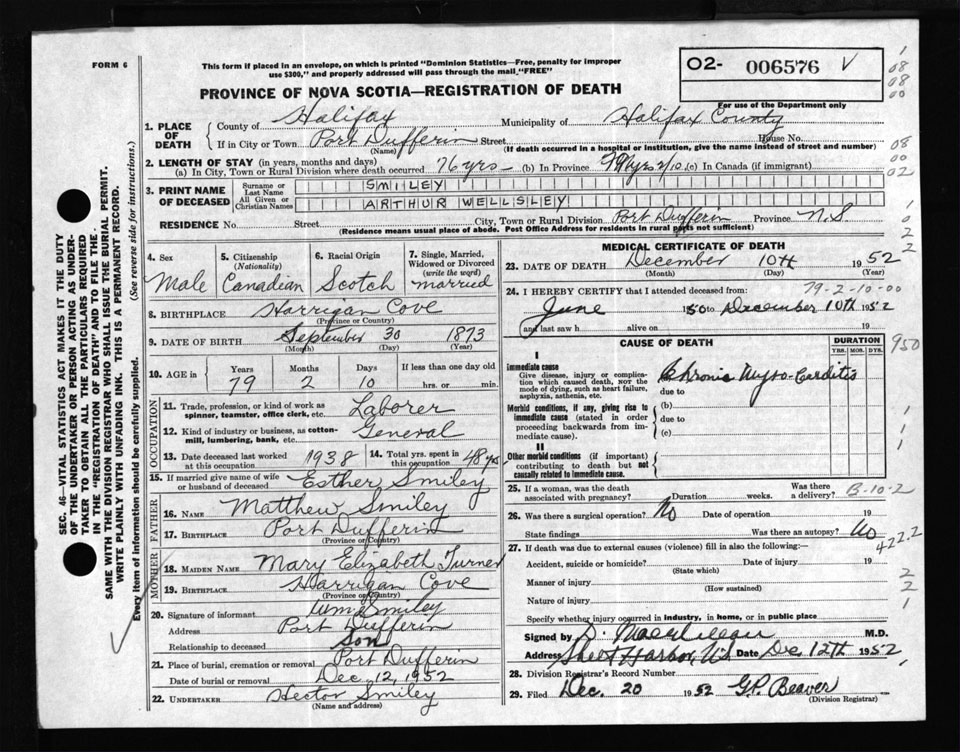 FORM 6
This form if placed in an envelope, on which is printed "Dominion Statistics—Free, penalty for improper
use $300," and properly addressed will pass through the mail "FREE"
PROVINCE OF NOVA SCOTIA—REGISTRATION OF DEATH
O2- 006576 V
For use of the Department only
1. PLACE OF DEATH
County of Halifax Municipality of Halifax County
If in City or Town Port Dufferin Street House No.
(Name) (If death occurred in a hospital or institution, give the name instead of street and number)
2. LENGTH OF STAY (in years, months and days)
(a) In City, Town or Rural Division where death occurred 76 yrs (b) In Province (c) In Canada (if immigrant)
3. PRINT NAME OF DECEASED
Surname or Last Name SMILEY
All Given or Christian Names ARTHUR WELLSLEY
RESIDENCE No. Street City, Town or Rural Division Port Dufferin Province N.S
(Residence means usual place of abode. Post Office Address for residents in rural parts not sufficient)
4. Sex
Male
5. Citizenship
(Nationality)
Canadian
6. Racial Origin
Scotch
7. Single, Married, Widowed or Divorced
(write the word)
married
8. BIRTHPLACE Harrigan Cove
(Province or Country)
9. DATE OF BIRTH September 30 1873
(Month) (Day) (Year)
10. AGE in Years Months Days If less than one day old
79 2 10 hrs. or min.
OCCUPATION
11. Trade, profession, or kind of work as spinner, teamster, office clerk, etc. Laborer
12. Kind of industry or business, as cotton-mill, lumbering, bank, etc. General
13. Date deceased last worked at this occupation 1938
14. Total yrs. spent in this occupation 48 yrs
15. If married give name of wife or husband of deceased Esther Smiley
FATHER
16. NAME Matthew Smiley
17. BIRTHPLACE Port Dufferin
(Province or Country)
MOTHER
18. MAIDEN NAME Mary Elizabeth Turner
19. BIRTHPLACE Harrigan Cove
(Province or Country)
20. Signature of informant Wm Smiley
Address Port Dufferin
Relationship to deceased Son
21. Place of burial, cremation or removal Port Dufferin
Date of burial or removal Dec. 12, 1952
22. UNDERTAKER Hector Smiley
(Name and address)
MEDICAL CERTIFICATE OF DEATH
23. DATE OF DEATH December 10th 1952
(Month) (Day) (Year)
79-2-10-00
24. I HEREBY CERTIFY that I attended deceased from:
June 1950 to December 10th 1952
and last saw h alive on 19
CAUSE OF DEATH
DURATION
YRS. MOS. DYS.
950
I
Immediate cause
Give disease, injury or complication which caused death, not the mode of dying, such as heart failure, asphyxia, asthenia, etc.
Chronic Myo-Carditis
due to
Morbid conditions, if any, giving rise to immediate cause (stated in order proceeding backwards from immediate cause).
(b)
due to
(c)
II
Other morbid conditions (if important) contributing to death but not causally related to immediate cause.
25. If a woman, was the death associated with pregnancy? Duration weeks. Was there a delivery? B-10-2
26. Was there a surgical operation? No Date of operation 19
State findings Was there an autopsy? No
422.2
27. If death was due to external causes (violence) fill in also the following:—
Accident, suicide or homicide? Date of injury 19
(State which)
Manner of injury
(How sustained)
Nature of injury
Specify whether injury occurred in industry, in home, or in public place
Signed by M.D.
Address Sheet Harbor, N.S Date Dec. 12th 1952
28. Division Registrar's Record Number
29. Filed Dec. 20 1952 G.P. Beaver
(Division Registrar)
SEC. 46—VITAL STATISTICS ACT MAKES IT THE DUTY
OF THE UNDERTAKER OR PERSON ACTING AS UNDER-
TAKER TO OBTAIN ALL THE PARTICULARS REQUIRED
IN THE "REGISTRATION OF DEATH" AND TO FILE THE
SAME WITH THE DIVISION REGISTRAR WHO SHALL ISSUE THE BURIAL PERMIT.
WRITE PLAINLY WITH UNFADING INK. THIS IS A PERMANENT RECORD.
Every item of information should be carefully supplied. (See reverse side for instructions.)